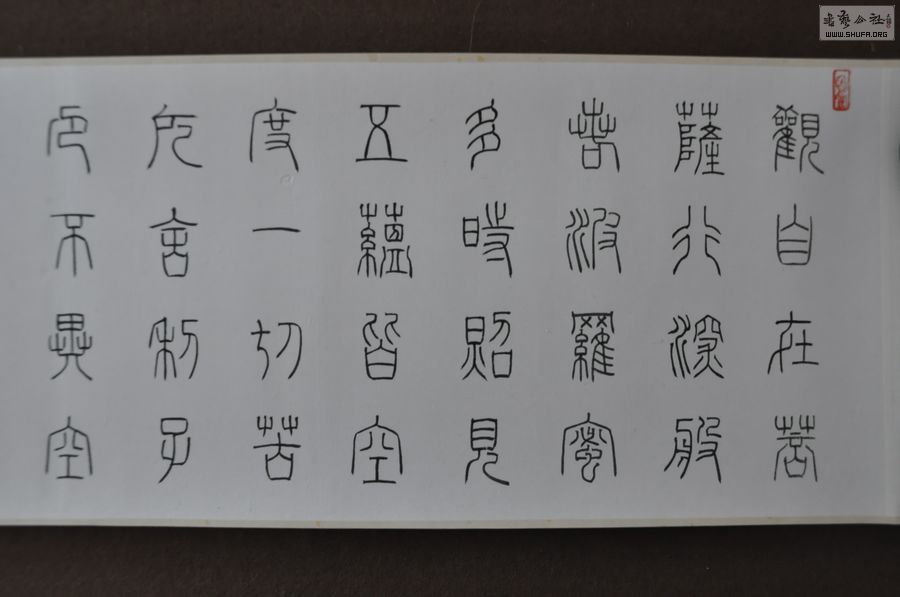 觀自在菩
薩行深般
若波羅蜜
多時照見
五蘊皆空
度一切苦
厄舍利子
色不異空
書藝公社
WWW.SHUFA.ORG